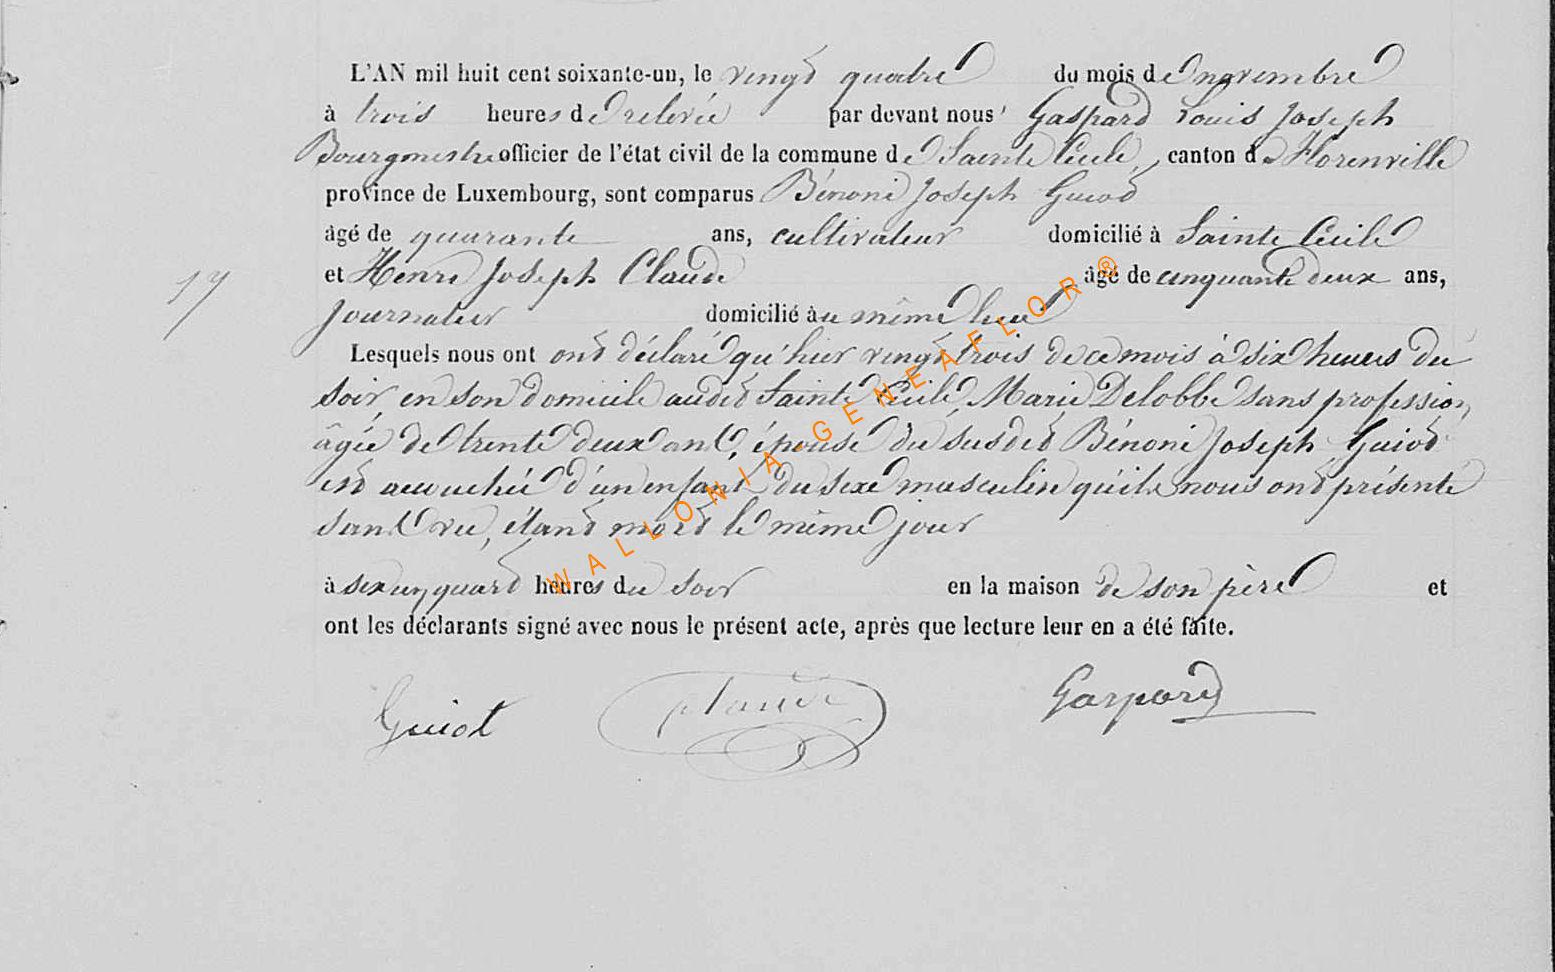 L'AN mil huit cent soixante-un, le vingt quatre du mois de novembre
à trois heures de relevée par devant nous Gaspard Louis Joseph
Bourgmestre officier de l'état civil de la commune de Sainte Cécile, canton de Florenville
province de Luxembourg, sont comparus Bénoni Joseph Guiot
âgé de quarante ans, cultivateur domicilié à Sainte Cécile
et Henri Joseph Claude âgé de cinquante deux ans,
17
journalier domicilié au même lieu
Lesquels nous ont ont déclaré qu'hier vingt trois de ce mois à six heures du
soir, en son domicile audit Sainte Cécile, Marie Delobbe sans profession,
âgée de trente deux ans, épouse du susdit Bénoni Joseph Guiot
est accouchée d'un enfant du sexe masculin qu'ils nous ont présenté
sans vie, étant mort le même jour
à six un quart heures du soir en la maison de son père et
ont les déclarants signé avec nous le présent acte, après que lecture leur en a été faite.
Guiot Claude Gaspard
WALLONIA-GENEAFLOR®